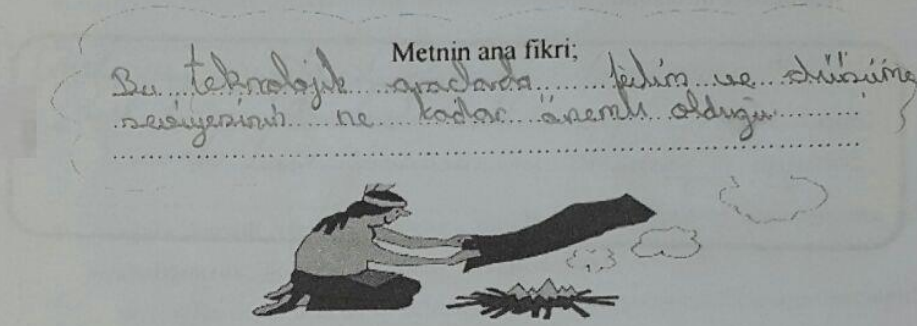 Metnin ana fikri;
Bu teknolojik araclarda bilim ve düşünme
seviyesinin ne kadar önemli olduğu